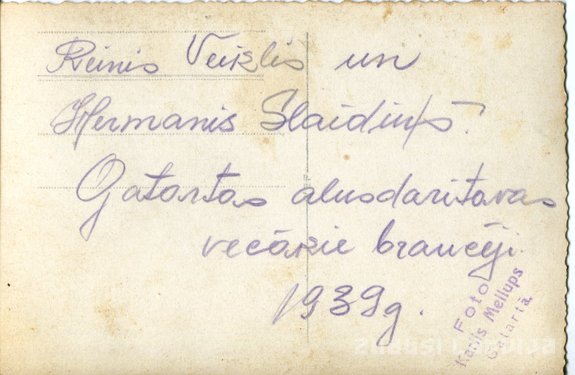 Reinis Veiklis un
Hermanis Slaidiņš.
Gatartas alusdaritavas
vecākie brauceji.
1939g.
Foto
Meilups
Gatartā